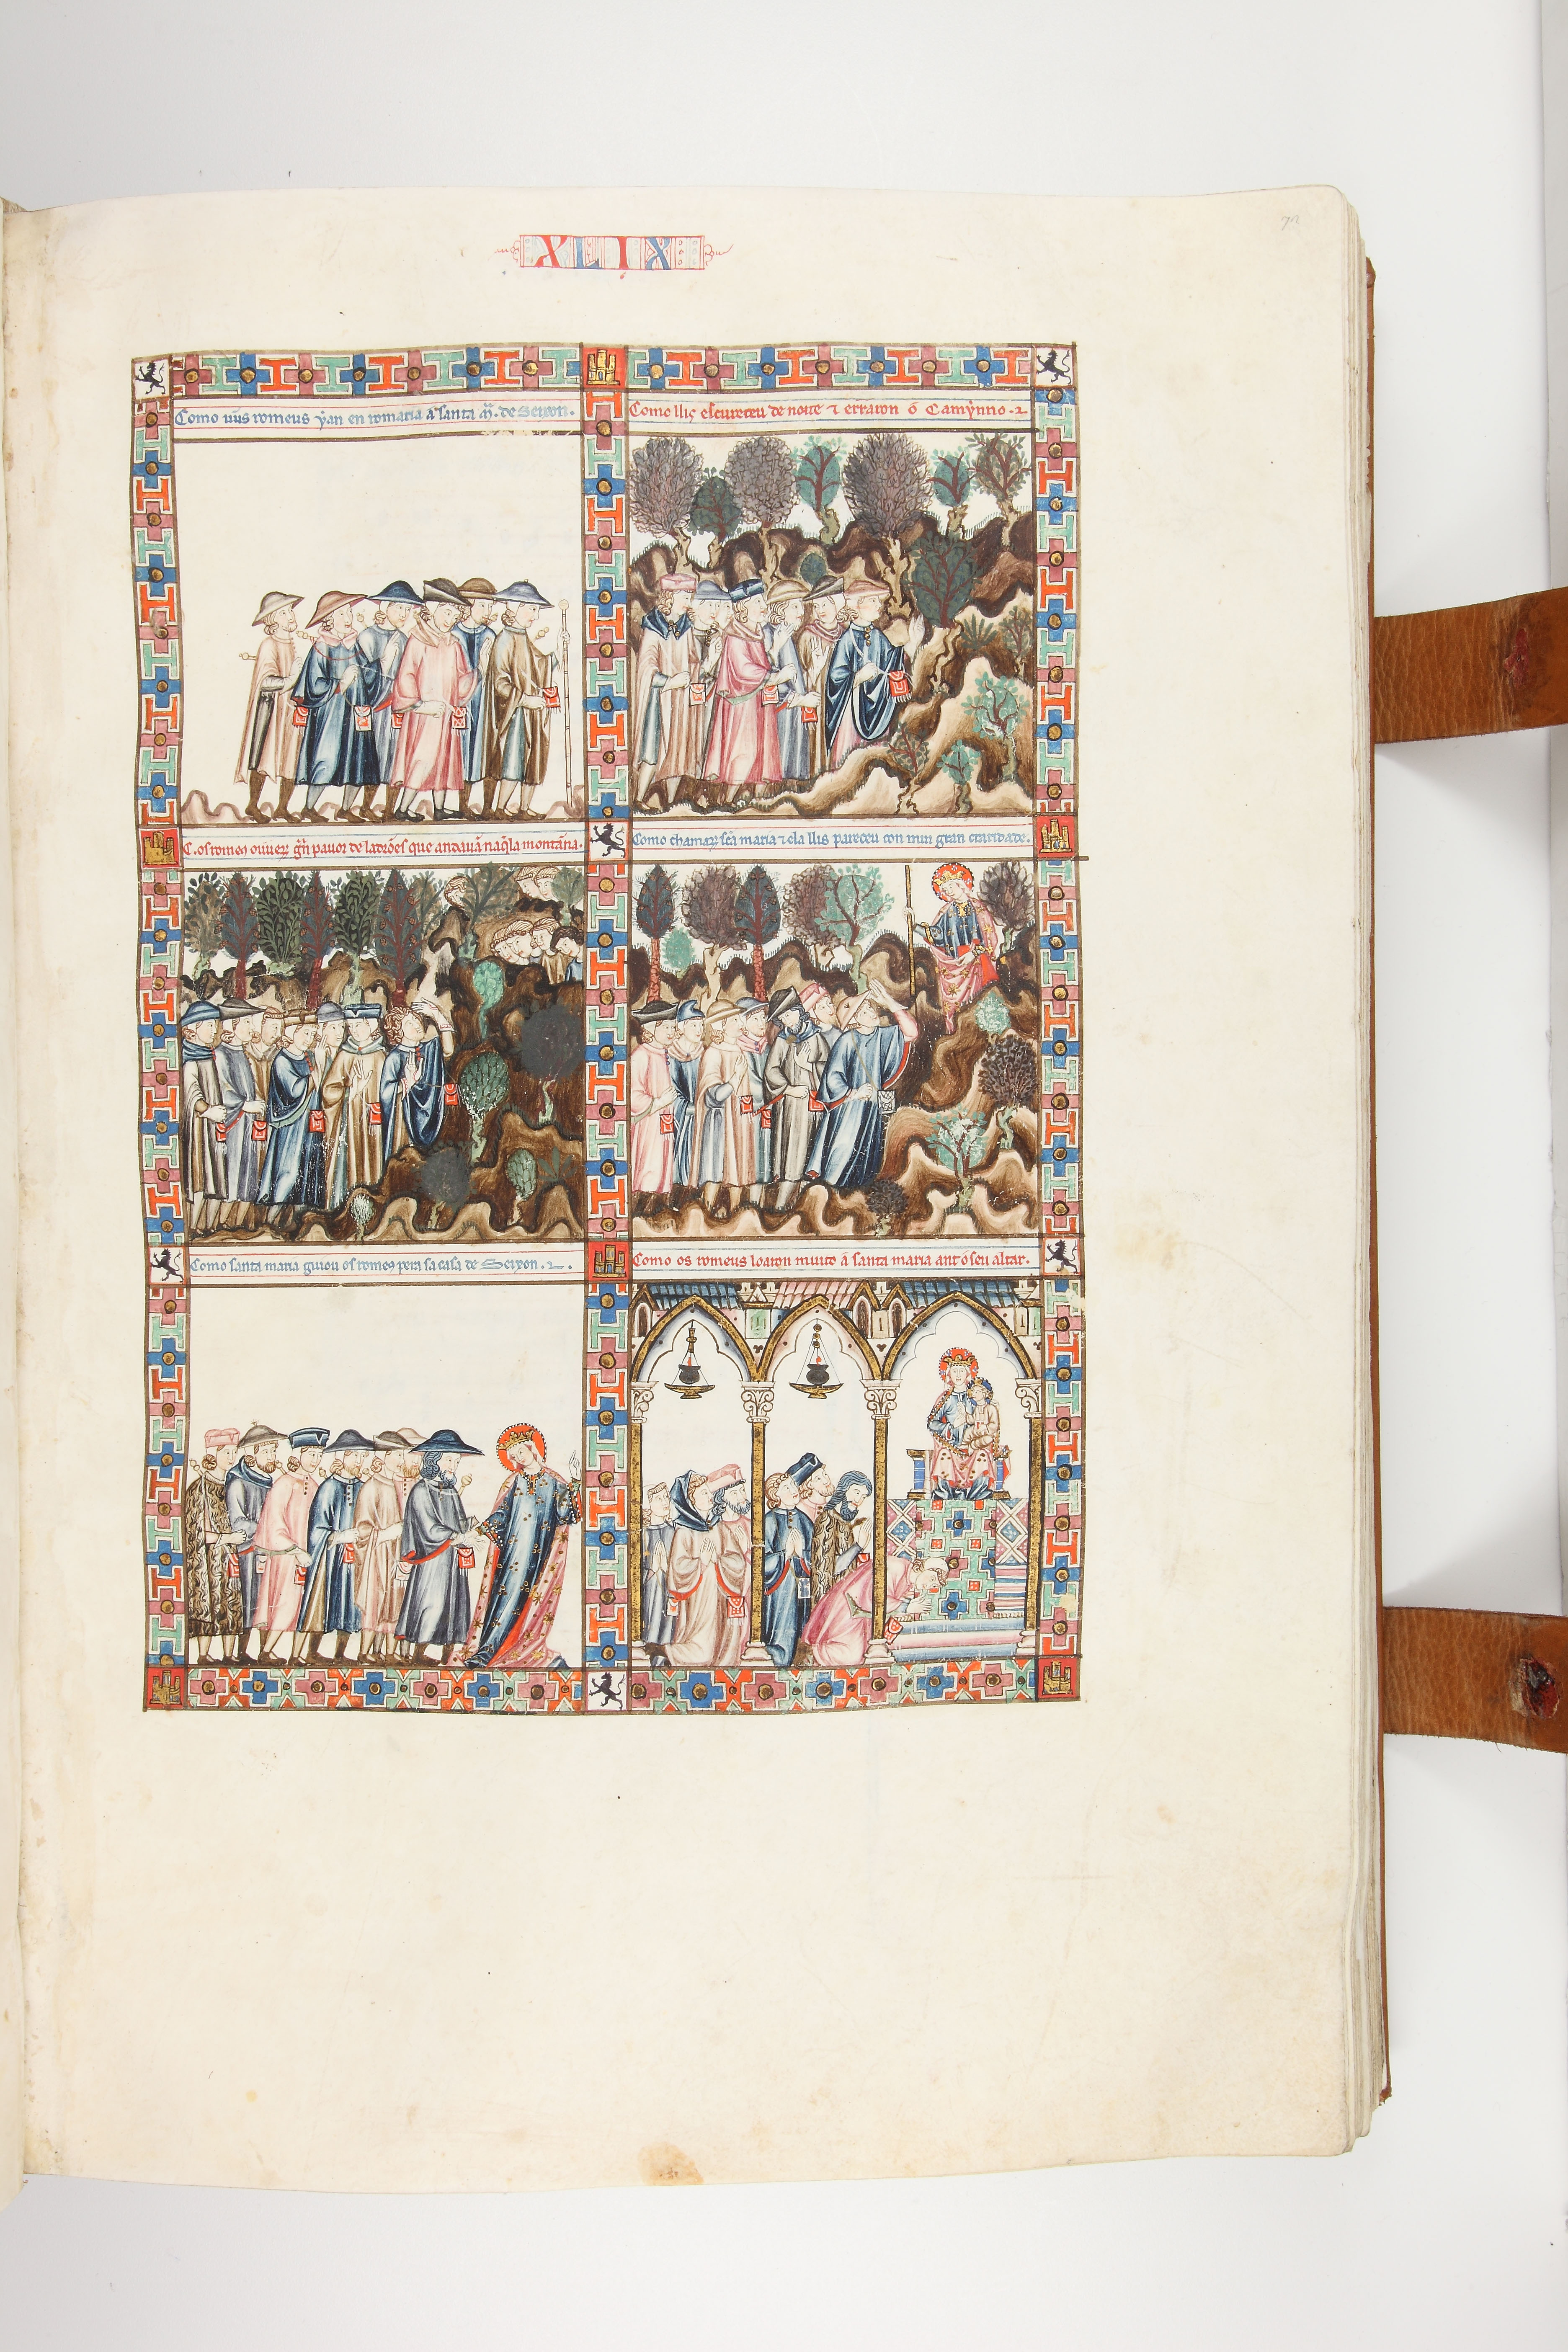 XLIX
72
Como uũs romeus yan en romaria a santa mª. de Seixon.
Como llis escureceu de noite ⁊ erraron o Camynno.
C. os romeus ouuerõ grã pauor de ladrões que andauã naq̃la montãna.
Como chamarõ sc̃a maria ⁊ ela llis pareceu con mui gran claridade.
Como santa maria guiou os romeus pera sa casa de Seixon.
Como os romeus loaron muito a santa maria ant o seu altar.